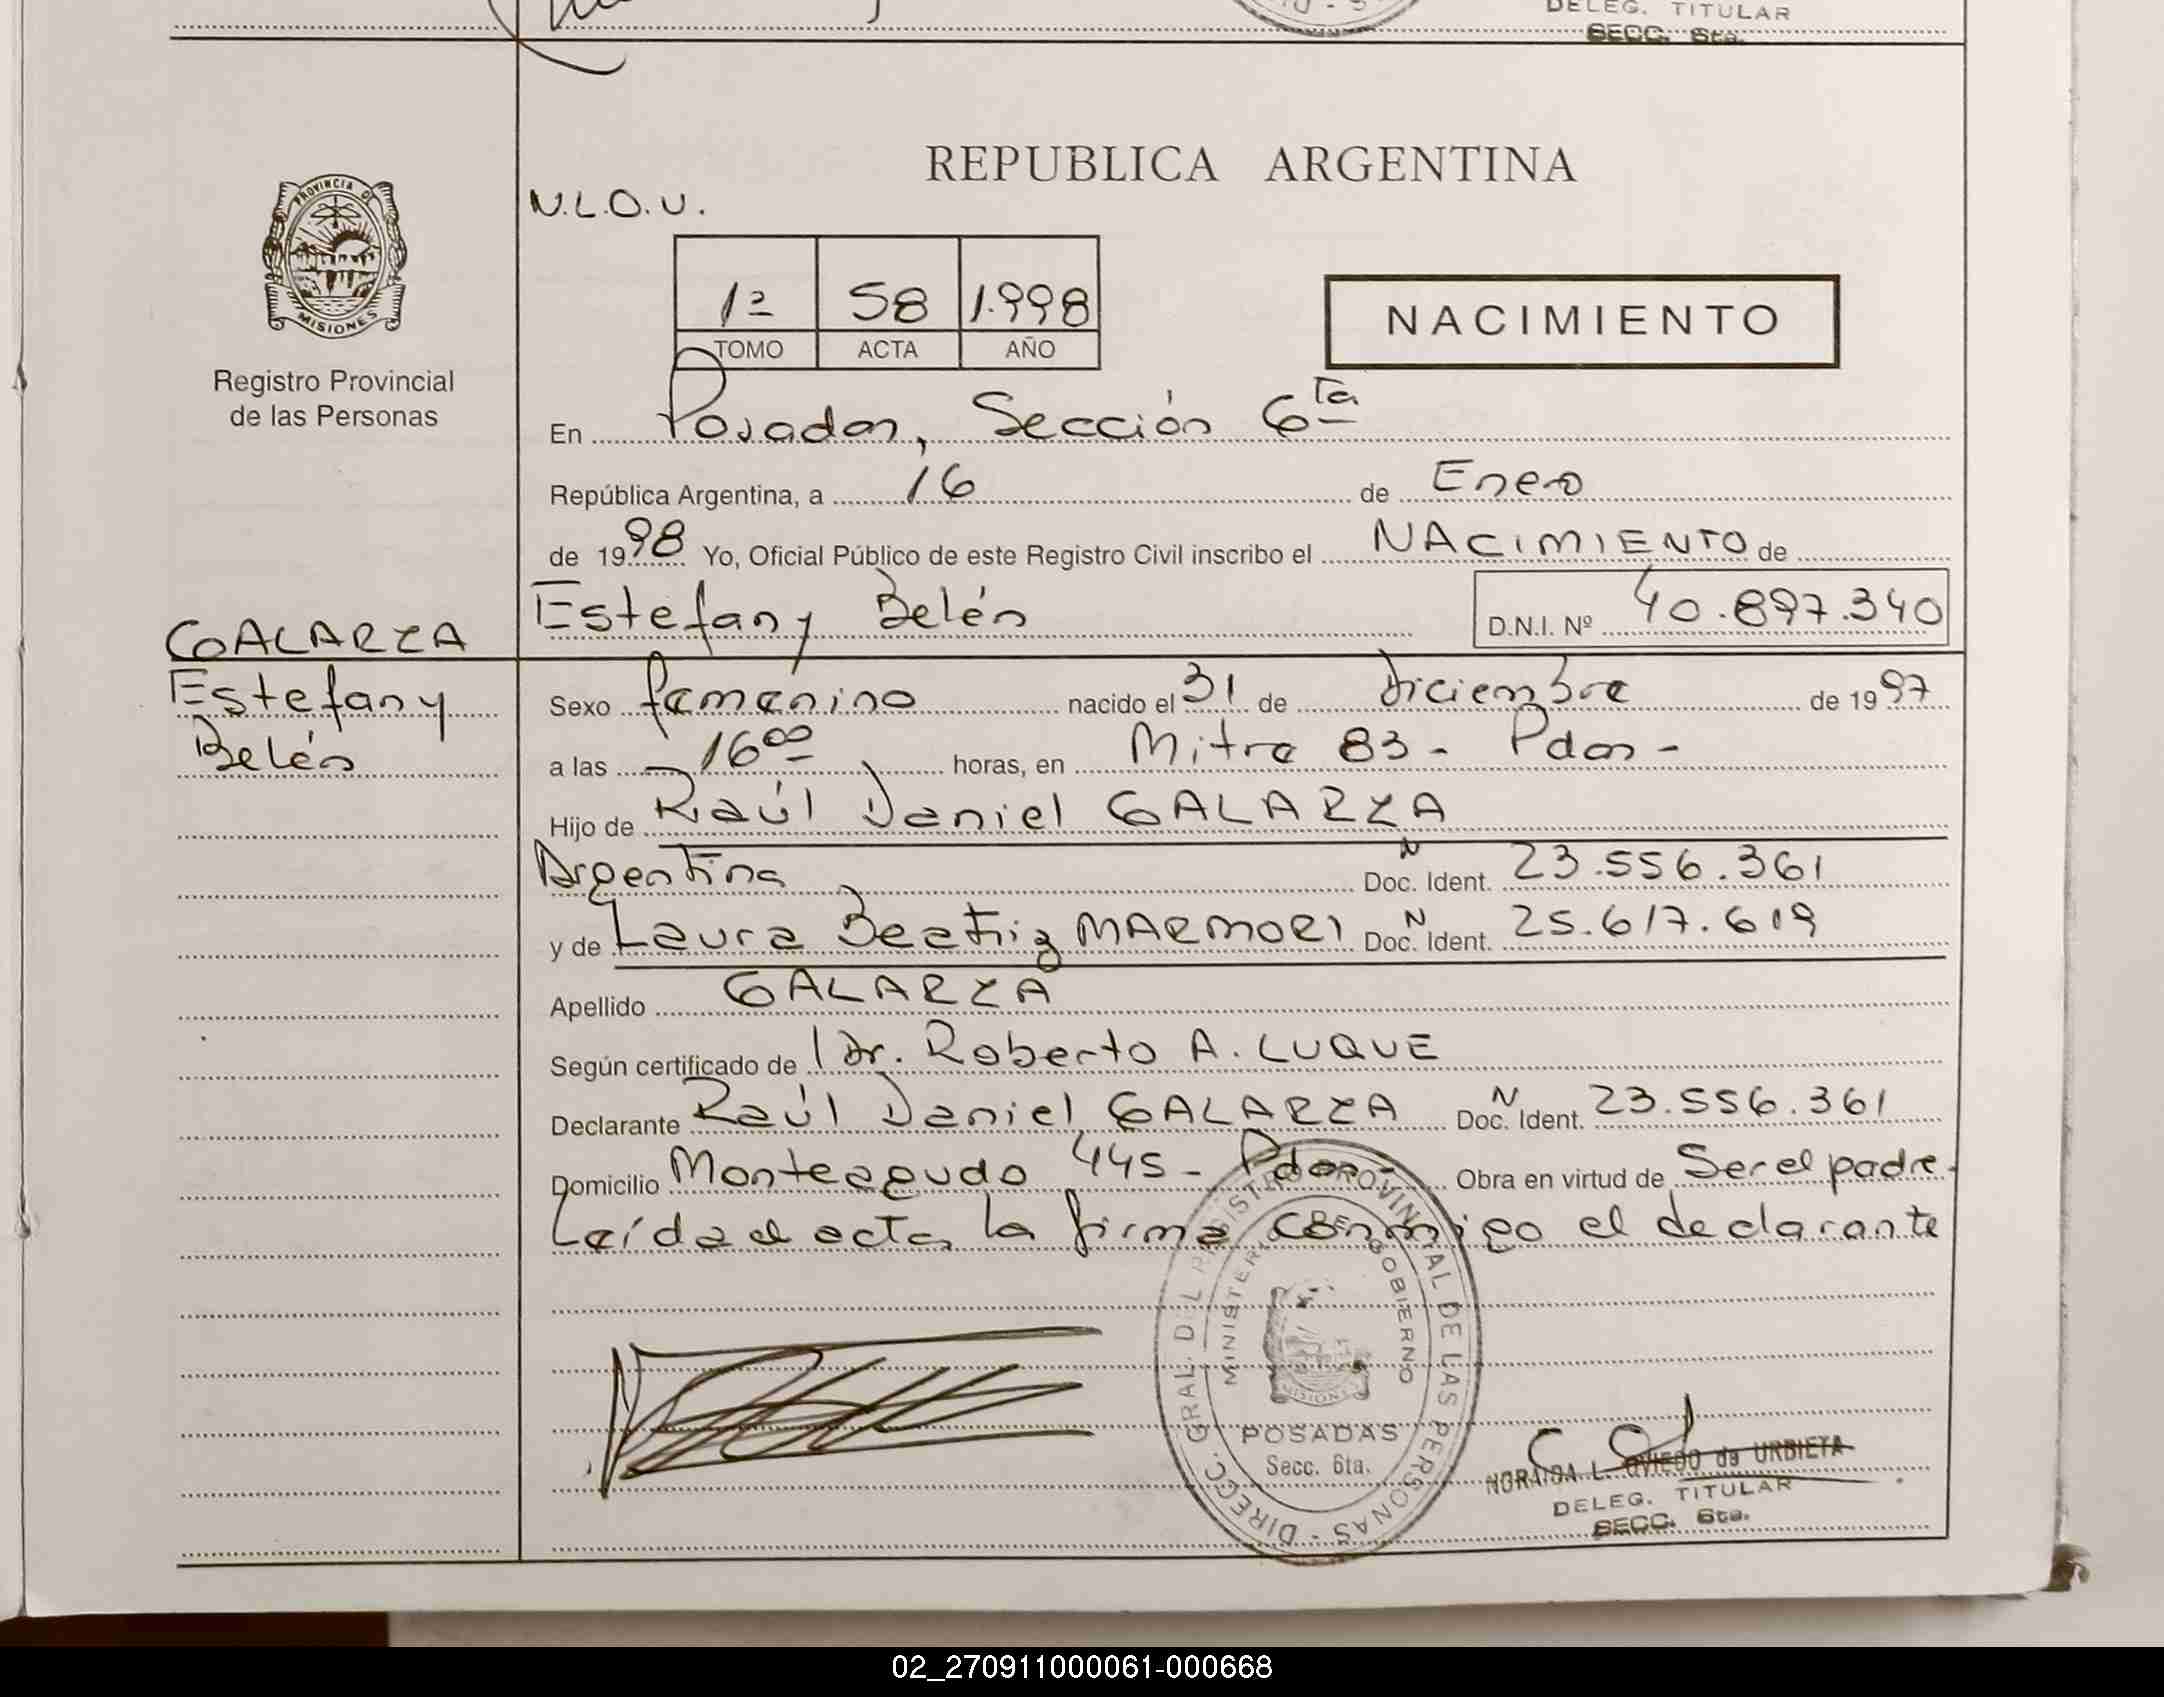 DELEG. TITULAR
SECC. 6ta.
REPUBLICA ARGENTINA
N.L.O.U.
PROVINCIA DE
MISIONES
1ª 58 1.998
TOMO ACTA AÑO
NACIMIENTO
Registro Provincial
de las Personas
En Posadas, Sección 6ta
República Argentina, a 16 de Enero
de 1998 Yo, Oficial Público de este Registro Civil inscribo el NACIMIENTO de
Estefany Belén D.N.I. Nº 40.897.340
GALARZA
Estefany
Belén
Sexo femenino nacido el 31 de Diciembre de 1997
a las 16 00 horas, en Mitre 83 - Pdas -
Hijo de Raúl Daniel GALARZA
Argentina Doc. N Ident. 23.556.361
y de Laura Beatriz MARMORI Doc. N Ident. 25.617.619
Apellido GALARZA
Según certificado de Dr. Roberto A. LUQUE
Declarante Raúl Daniel GALARZA Doc. N Ident. 23.556.361
Domicilio Monteagudo 445 - Pdas - Obra en virtud de Ser el padre.
Leída el acta, la firma conmigo el declarante
DIRECC. GRAL. DEL REGISTRO PROVINCIAL DE LAS PERSONAS -
MINISTERIO DE GOBIERNO
MISIONES
POSADAS
Secc. 6ta.
NORAIDA L. OVIEDO de URBIETA
DELEG. TITULAR
SECC. 6ta.
02_270911000061-000668